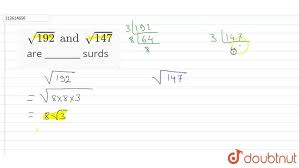 112614650
√192 and √147
are ______ surds
3 | 192
8 | 64
8
3 | 147
√192
√147
= √8x8x3
= 8√3
doubtnut